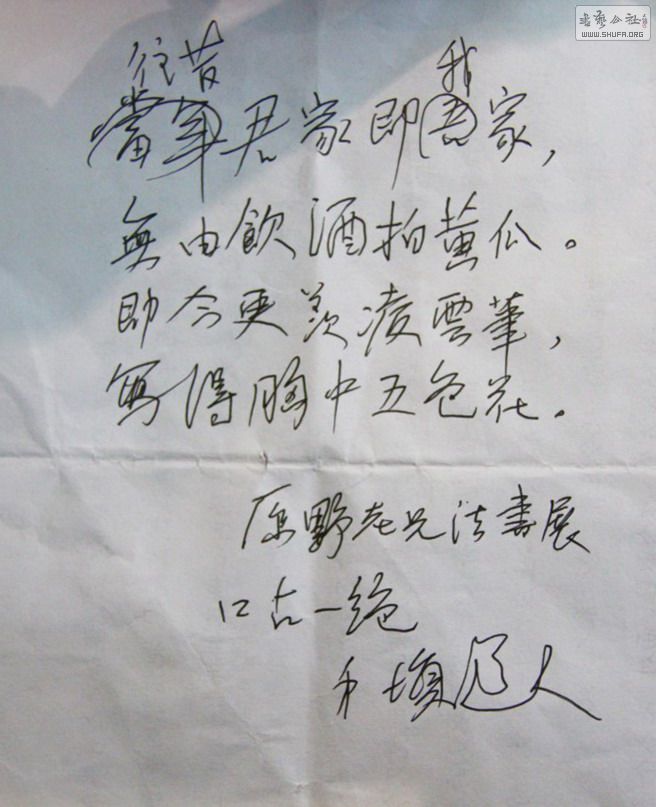 往昔 我
當年君家即吾家，
無由飲酒拍黄瓜。
即今更羨凌雲筆，
寫得胸中五色花。
原野老兄法書展
口占一絕
人
書藝公社
WWW.SHUFA.ORG